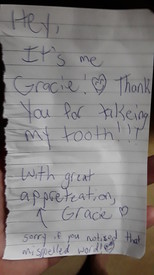 Hey,
It's me
Gracie. Thank
You for takeing
my tooth!!!
With great
appreteation,
Gracie
sorry if you notised that
misspelled word!